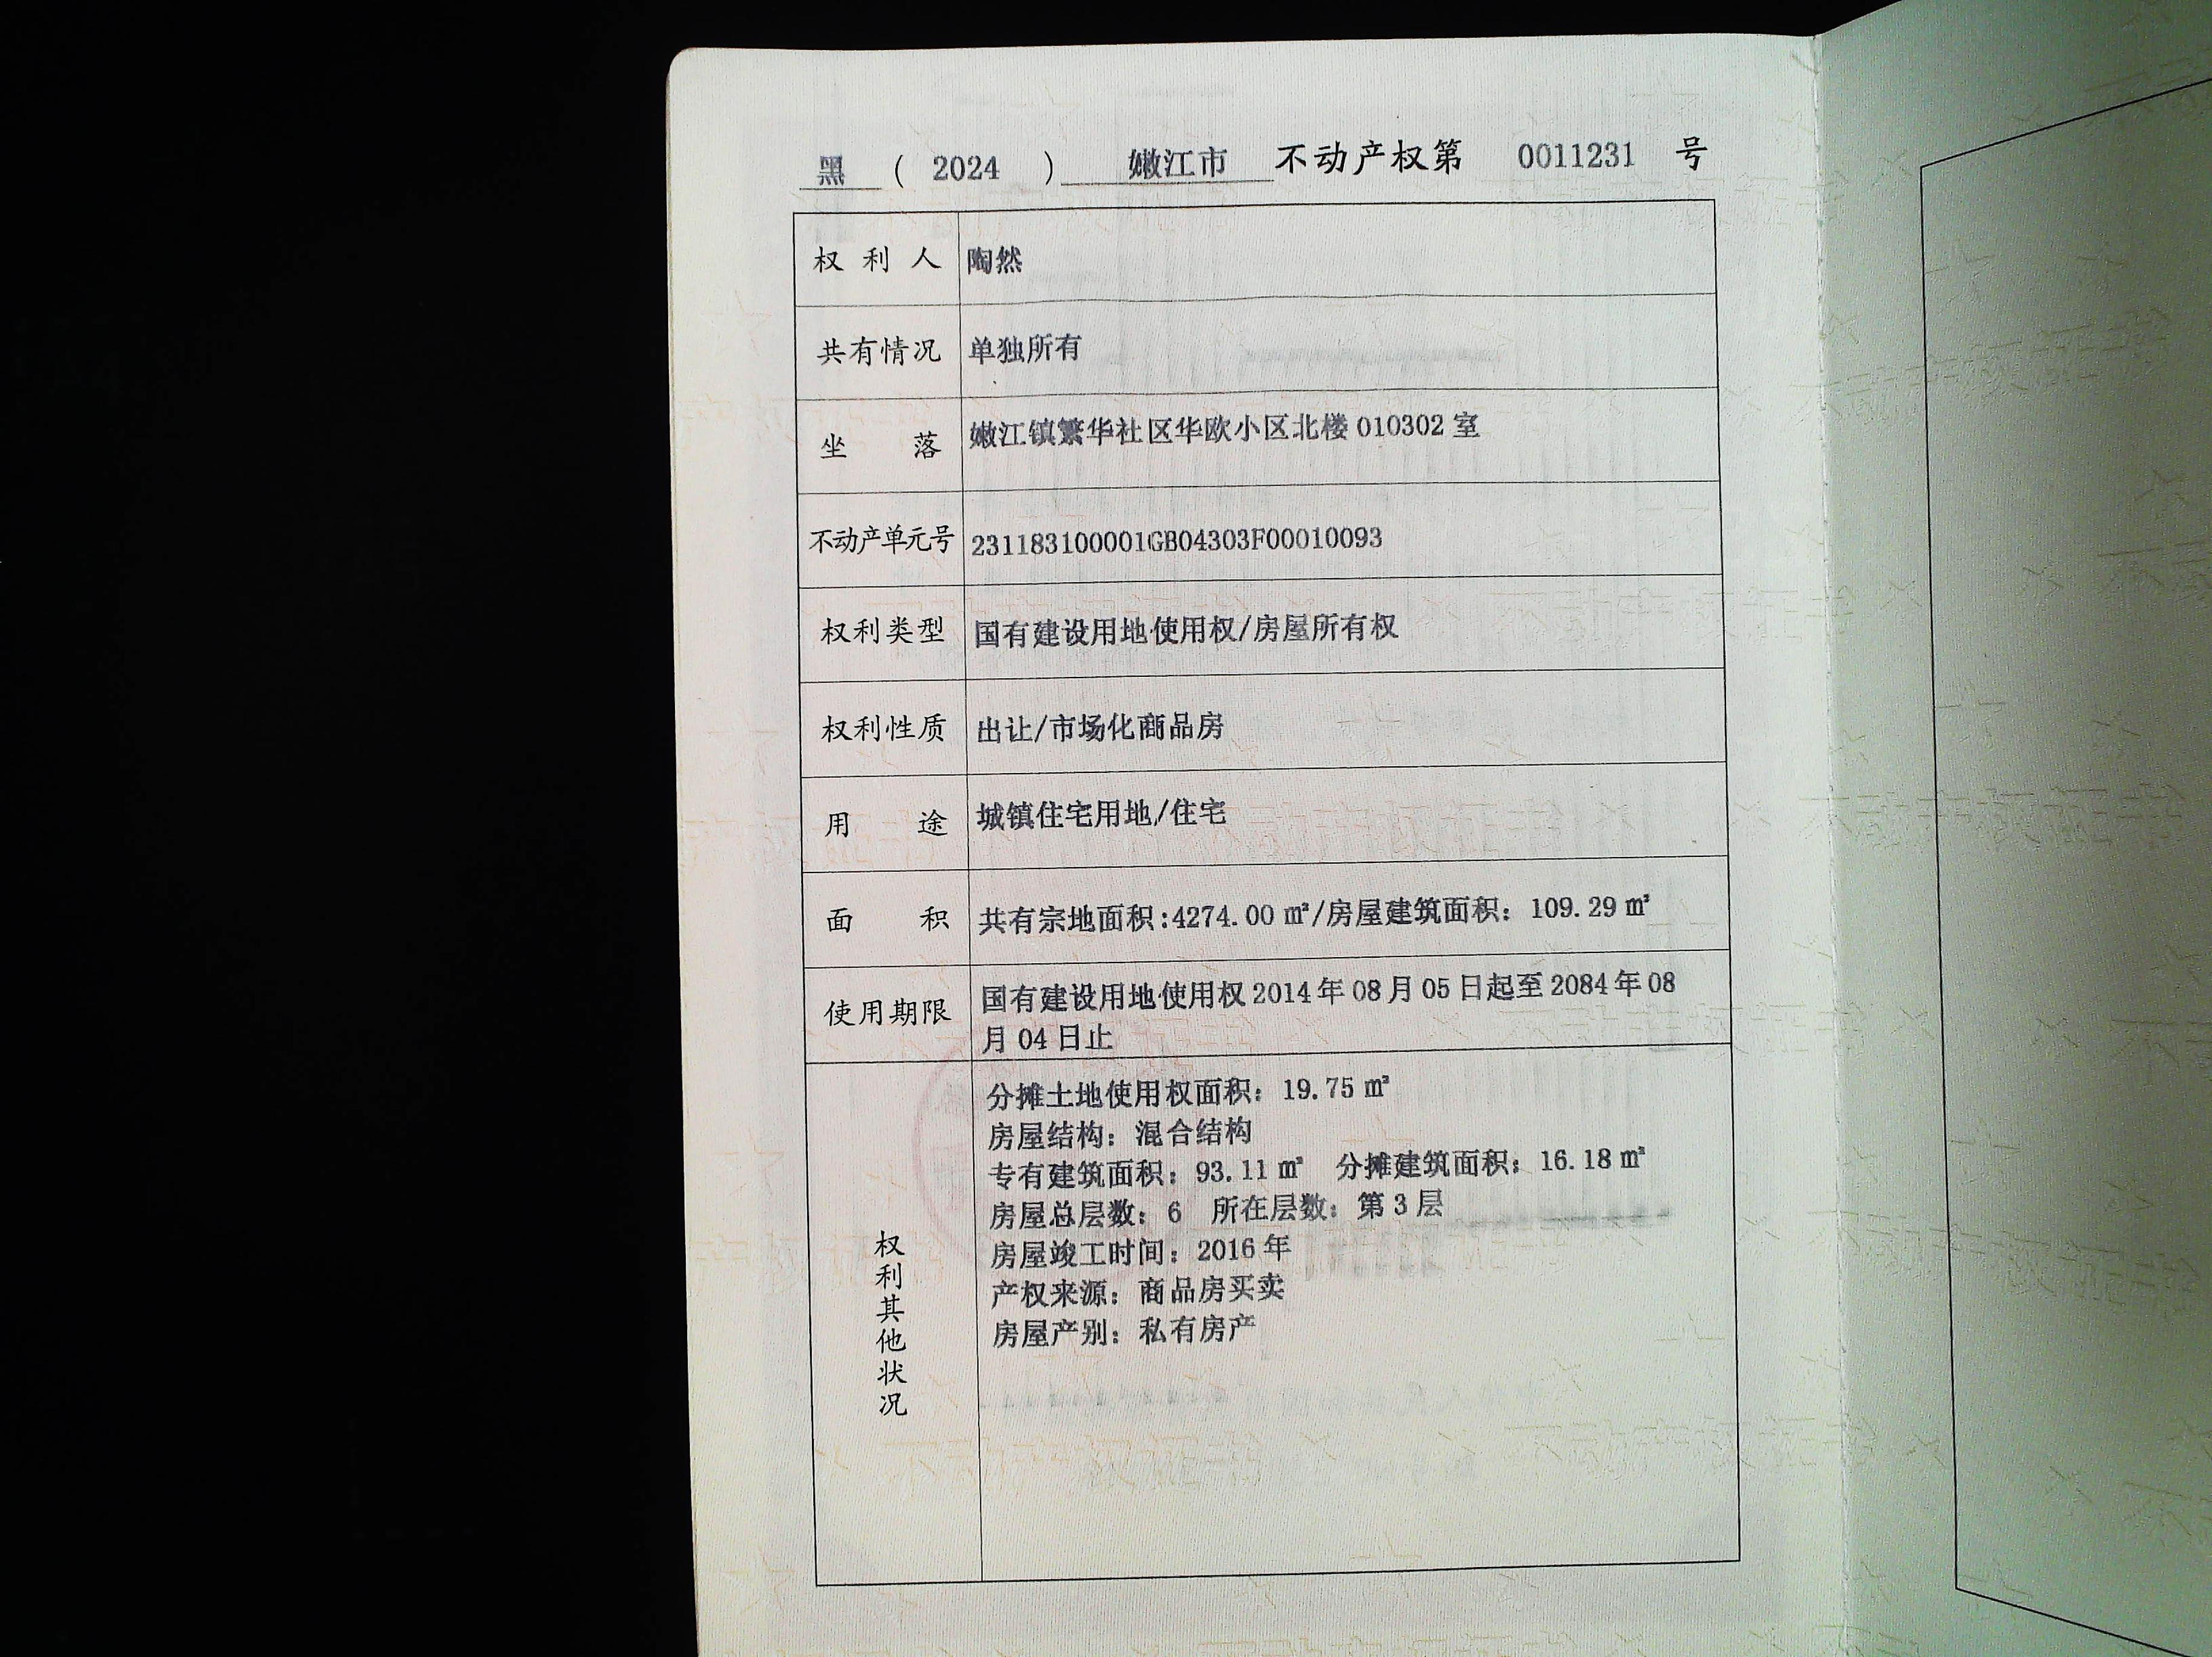 黑 ( 2024 ) 嫩江市 不动产权第 0011231 号
权利人 陶然
共有情况 单独所有
坐落 嫩江镇繁华社区华欧小区北楼 010302 室
不动产单元号 231183100001GB04303F00010093
权利类型 国有建设用地使用权/房屋所有权
权利性质 出让/市场化商品房
用途 城镇住宅用地/住宅
面积 共有宗地面积:4274.00 ㎡/房屋建筑面积: 109.29 ㎡
使用期限 国有建设用地使用权 2014 年 08 月 05 日起至 2084 年 08
月 04 日止
权利其他状况
分摊土地使用权面积: 19.75 ㎡
房屋结构: 混合结构
专有建筑面积: 93.11 ㎡ 分摊建筑面积: 16.18 ㎡
房屋总层数: 6 所在层数: 第 3 层
房屋竣工时间: 2016 年
产权来源: 商品房买卖
房屋产别: 私有房产